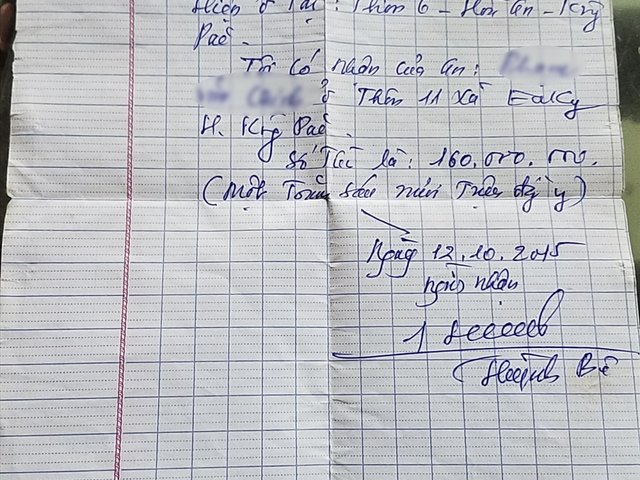 Hiện ở tại: Thôn 6 - Hòa An - Krông
Pắc.
Tôi có nhận của an:
ở Thôn 11 Xã EaKly
H. Krông Pắc.
Số Tiền là: 160.000.000.
(Một Trăm Sáu mươi Triệu đồng y)
Ngày 12.10.2015
người nhận
Huỳnh Bê